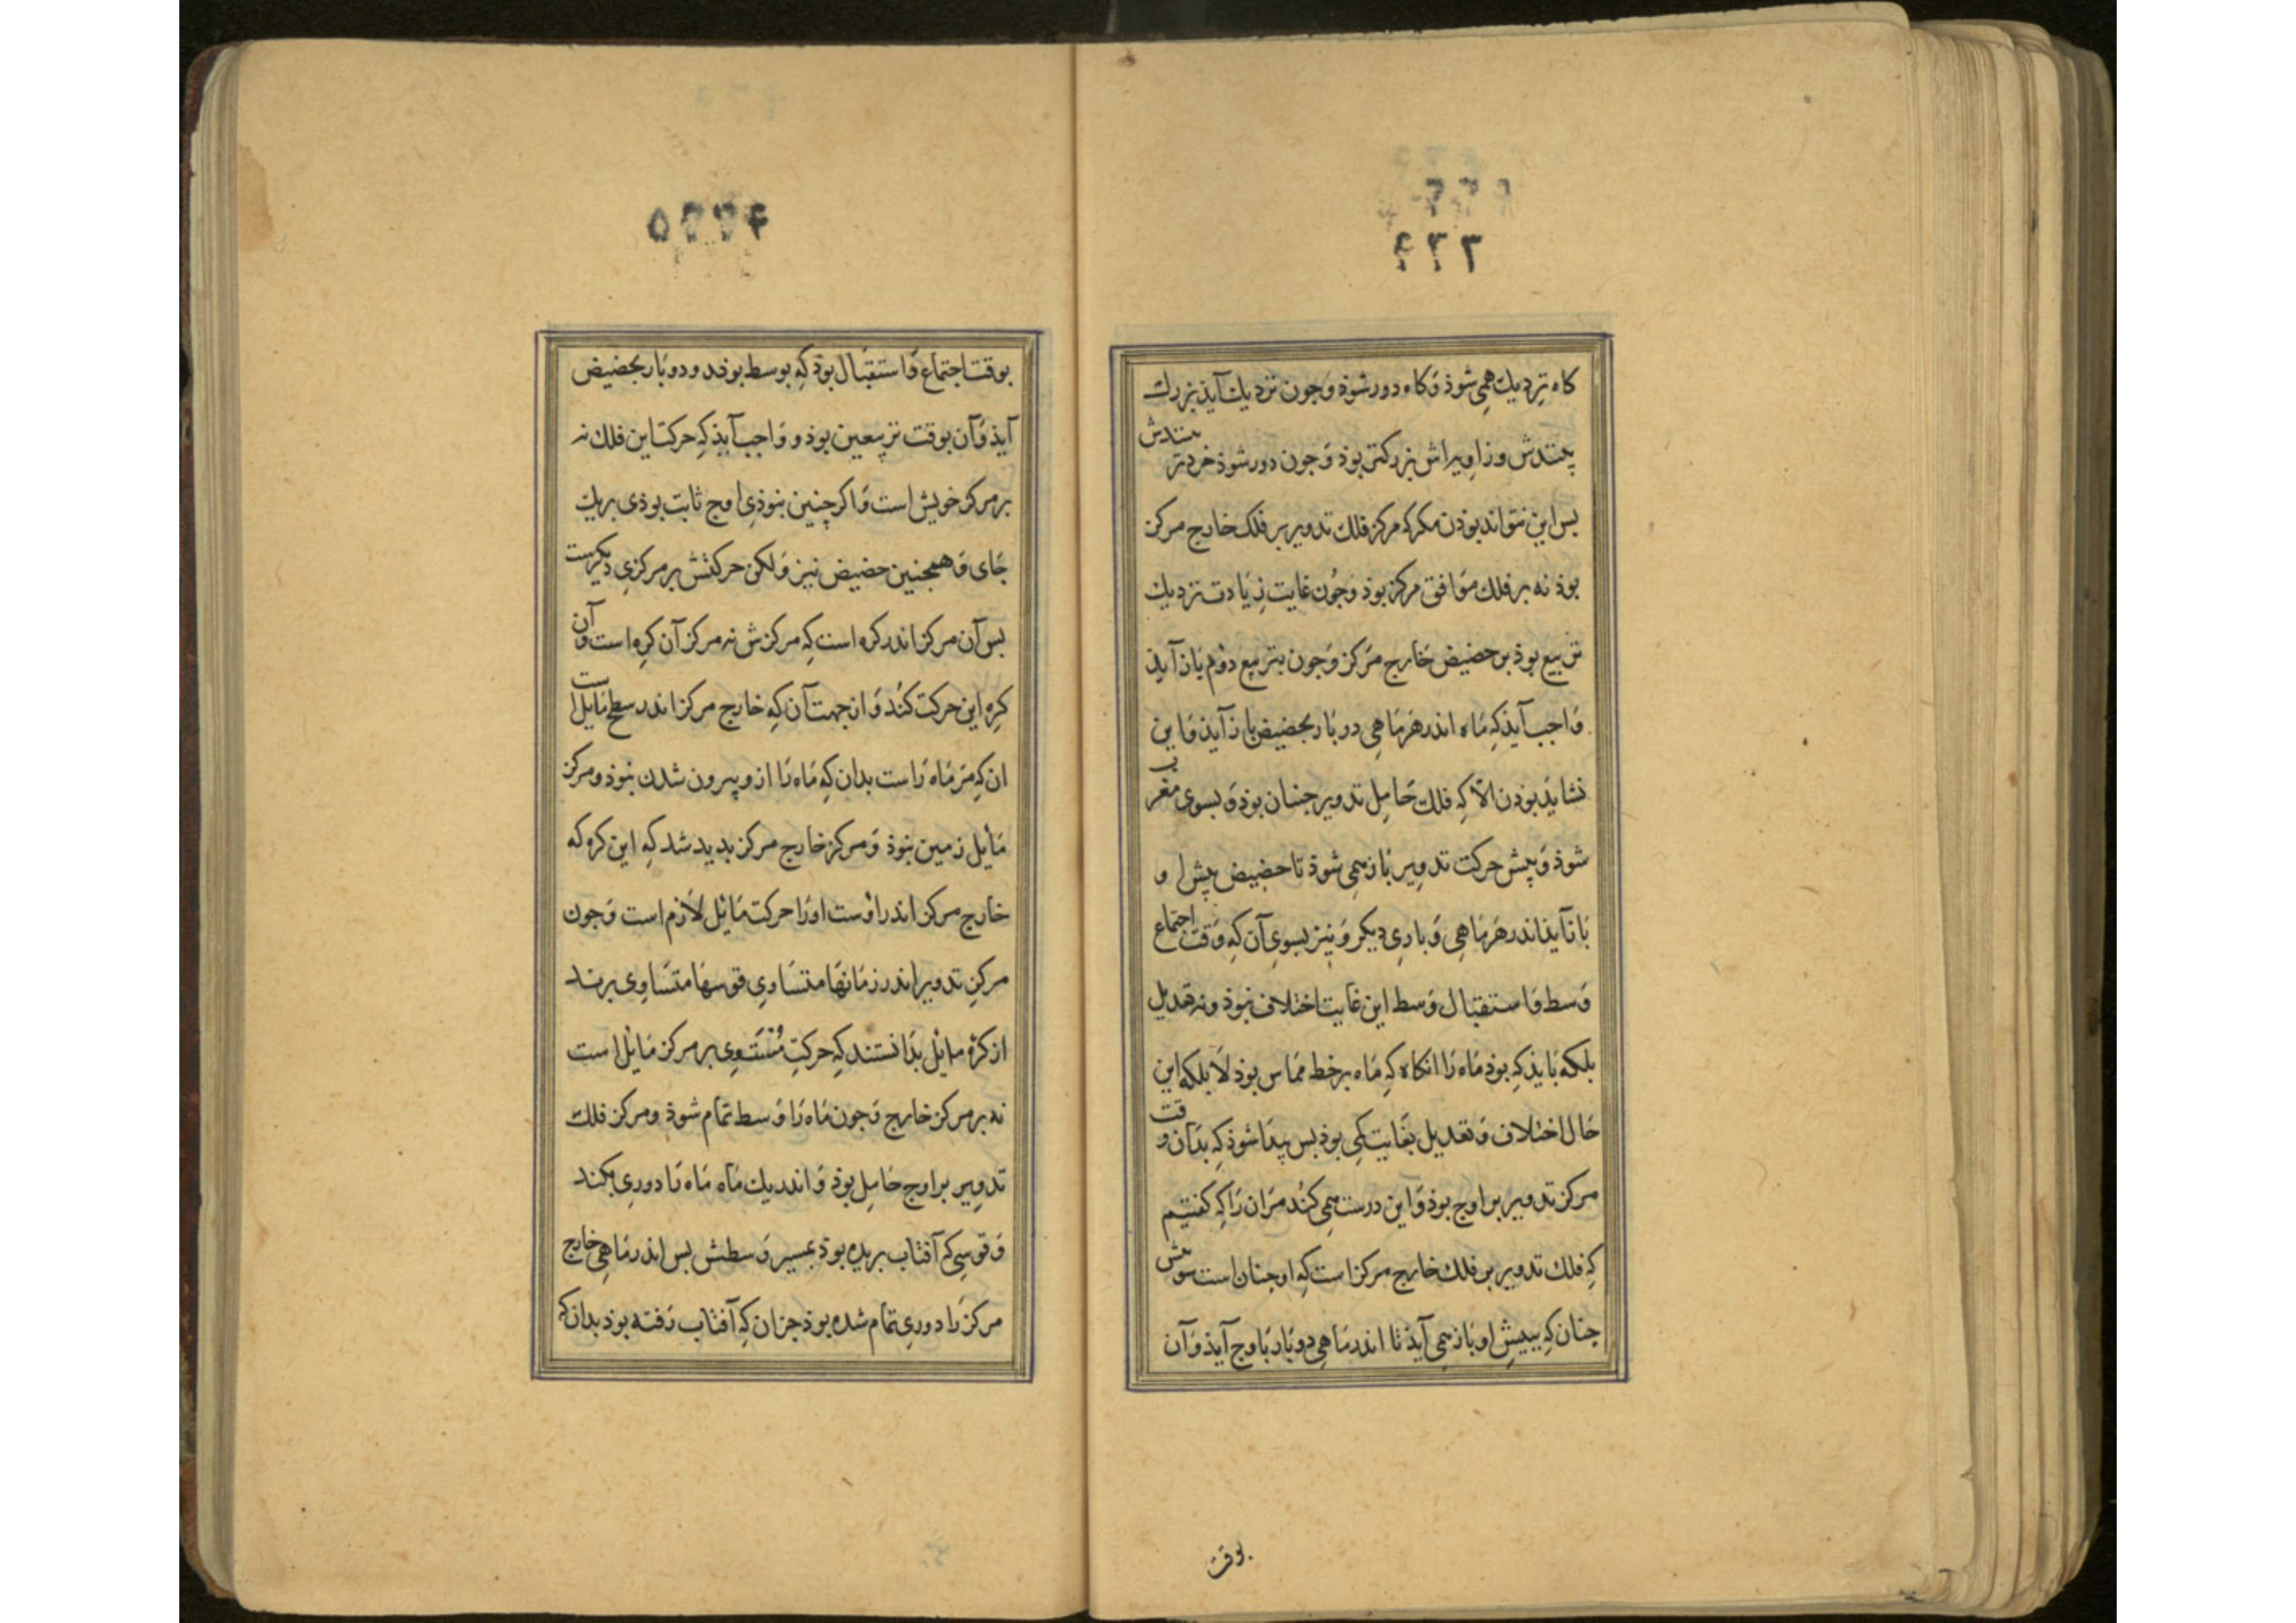 كاه نزديك همى شوذ وكاه دور شوذ وجون نزديك آيذ بزرك
بينندش وزاويه‌اش بزركتر بوذ وجون دور شوذ خردتر بينندش
بس اين نتواند بوذن مكر كه مركز فلك تدوير بر فلك خارج مركز
بوذ نه بر فلك موافق مركز بوذ وجون غايت زيادت نزديك
تربيع بوذ بر حضيض خارج مركز وجون بتربيع دوم باز آيذ
واجب آيذ كه ماه اندر هر ماهى دو بار بحضيض باز آيذ واين
نشايذ بوذن الا كه فلك حامل تدوير جنان بوذ و بسوى مغرب
شوذ وپيش حركت تدوير باز همى شوذ تا حضيض پيش او
باز آيذ اندر هر ماهى و بارى ديكر ونيز بسوى آن كه وقت اجتماع
وسط واستقبال وسط اين غايت اختلاف نبوذ ونه تعديل
بلكه بايذ كه بوذ ماه را آنكاه كه ماه بر خط مماس بوذ لا بلكه اين
حال اختلاف وتعديل بغايت كمى بوذ بس پيدا شوذ كه بدان وقت
مركز تدوير بر اوج بوذ واين درست همى كند مران را كه كفتيم
كه فلك تدوير بر فلك خارج مركز است كه او جنان است
جنان كه بپيش او باز همى آيذ تا اندر ماهى دو بار باوج آيذ وآن
بوقت
بوقت اجتماع واستقبال بوذ كه بوسط بوند ودو بار بحضيض
آيذ وآن بوقت تربيعين بوذ و واجب آيذ كه حركت اين فلك نه
بر مركز خويش است واكر چنين نبوذى اوج ثابت بوذى بريك
جاى وهمجنين حضيض نيز ولكن حركتش بر مركزى ديكرست
بس آن مركز اندر كره است كه مركزش نه مركز آن كره است وآن
كره اين حركت كند واز جهت آن كه خارج مركز اندر سطح مايل است
ان كه مر ماه راست بدان كه ماه را ازو بيرون شدن نبوذ ومركز
مايل زمين بوذ ومركز خارج مركز بديد شد كه اين كره كه
خارج مركز اندر اوست او را حركت مايل لازم است وجون
مركز تدوير اندر زمانها متساوى قوسها متساوى برند
از كره مايل بدانستند كه حركت مستوى بر مركز مايل است
نه بر مركز خارج وجون ماه را وسط تمام شوذ ومركز فلك
تدوير بر اوج حامل بوذ واندر يك ماه ماه را دورى بكند
وقوسى كه آفتاب بريده بوذ بمسير وسطش بس اندر ماهى خارج
مركز را دورى تمام شده بوذ جزان كه آفتاب رفته بوذ بدان كه